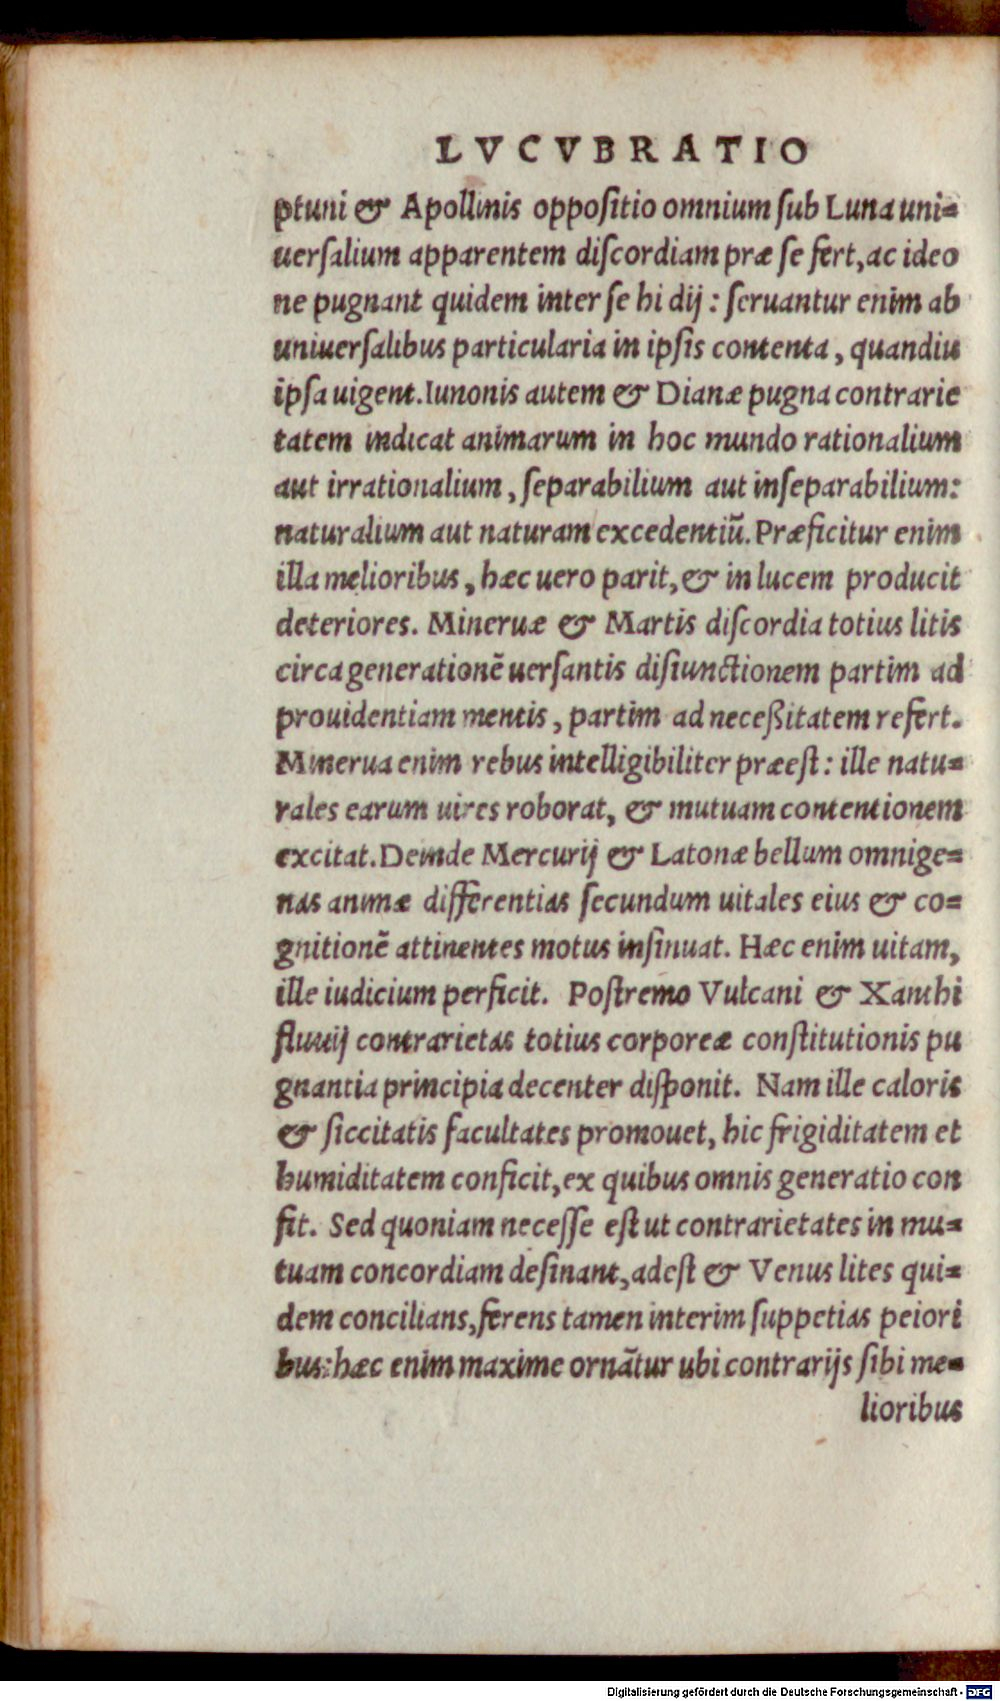 LVCVBRATIO
ptuni & Apollinis oppoſitio omnium ſub Luna uni=
uerſalium apparentem diſcordiam præ ſe fert, ac ideo
ne pugnant quidem inter ſe hi dij : ſeruantur enim ab
uniuerſalibus particularia in ipſis contenta, quandiu
ipſa uigent. Iunonis autem & Dianæ pugna contrarie
tatem indicat animarum in hoc mundo rationalium
aut irrationalium, ſeparabilium aut inſeparabilium:
naturalium aut naturam excedentiũ. Præficitur enim
illa melioribus, hæc uero parit, & in lucem producit
deteriores. Mineruæ & Martis diſcordia totius litis
circa generationẽ uerſantis diſiunctionem partim ad
prouidentiam mentis, partim ad neceßitatem refert.
Minerua enim rebus intelligibiliter præeſt: ille natu=
rales earum uires roborat, & mutuam contentionem
excitat. Deinde Mercurij & Latonæ bellum omnige=
nas animæ differentias ſecundum uitales eius & co=
gnitionẽ attinentes motus inſinuat. Hæc enim uitam,
ille iudicium perficit. Poſtremo Vulcani & Xanthi
fluuij contrarietas totius corporeæ conſtitutionis pu
gnantia principia decenter diſponit. Nam ille caloris
& ſiccitatis facultates promouet, hic frigiditatem et
humiditatem conficit, ex quibus omnis generatio con
fit. Sed quoniam neceſſe eſt ut contrarietates in mu=
tuam concordiam deſinant, adeſt & Venus lites qui=
dem concilians, ferens tamen interim ſuppetias peiori
bus: hæc enim maxime ornãtur ubi contrarijs ſibi me=
lioribus
Digitalisierung gefördert durch die Deutsche Forschungsgemeinschaft - DFG